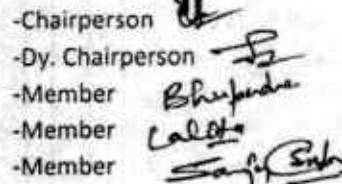 -Chairperson
-Dy. Chairperson
-Member Bhupendra
-Member Lalita
-Member